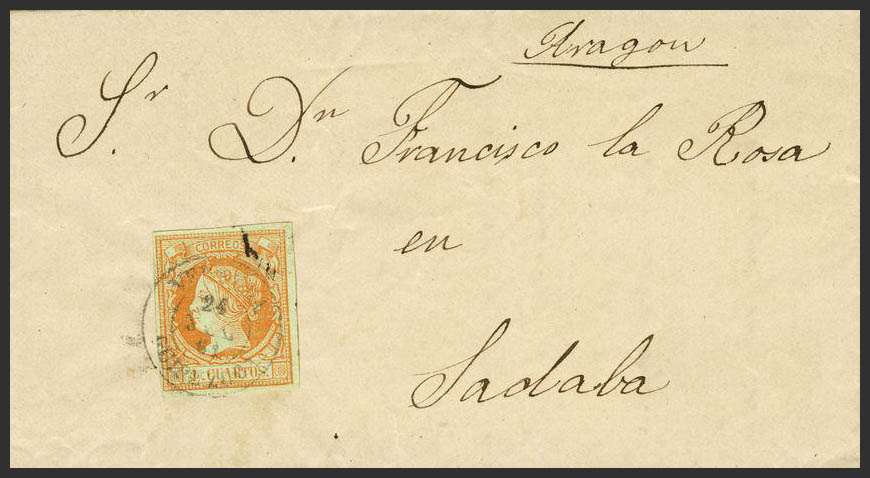 Aragon
Sr. Dn. Francisco la Rosa
en
Sadaba
CORREOS
24
4 CUARTOS.